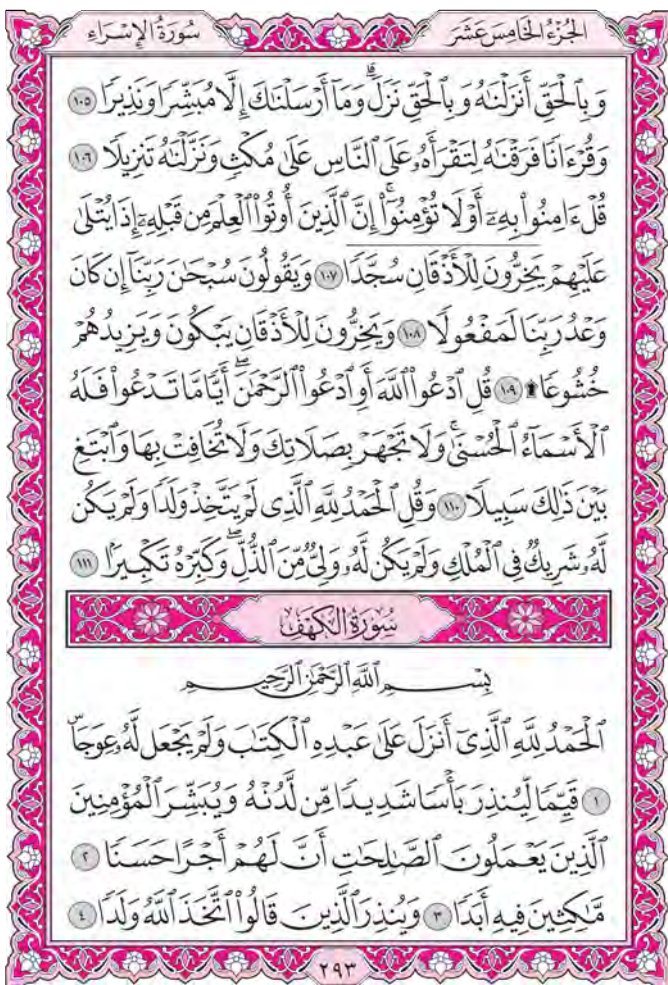 الجُزْءُ الخَامِسَ عَشَرَ
سُورَةُ الإِسْرَاءِ
وَبِٱلْحَقِّ أَنزَلْنَٰهُ وَبِٱلْحَقِّ نَزَلَۗ وَمَآ أَرْسَلْنَٰكَ إِلَّا مُبَشِّرًا وَنَذِيرًا ١٠٥
وَقُرْءَانًا فَرَقْنَٰهُ لِتَقْرَأَهُۥ عَلَى ٱلنَّاسِ عَلَىٰ مُكْثٍ وَنَزَّلْنَٰهُ تَنزِيلًا ١٠٦
قُلْ ءَامِنُوا۟ بِهِۦٓ أَوْ لَا تُؤْمِنُوٓا۟ۚ إِنَّ ٱلَّذِينَ أُوتُوا۟ ٱلْعِلْمَ مِن قَبْلِهِۦٓ إِذَا يُتْلَىٰ
عَلَيْهِمْ يَخِرُّونَ لِلْأَذْقَانِ سُجَّدًا ١٠٧ وَيَقُولُونَ سُبْحَٰنَ رَبِّنَآ إِن كَانَ
وَعْدُ رَبِّنَا لَمَفْعُولًا ١٠٨ وَيَخِرُّونَ لِلْأَذْقَانِ يَبْكُونَ وَيَزِيدُهُمْ
خُشُوعًا ۩ ١٠٩ قُلِ ٱدْعُوا۟ ٱللَّهَ أَوِ ٱدْعُوا۟ ٱلرَّحْمَٰنَۖ أَيًّا مَّا تَدْعُوا۟ فَلَهُ
ٱلْأَسْمَآءُ ٱلْحُسْنَىٰۚ وَلَا تَجْهَرْ بِصَلَاتِكَ وَلَا تُخَافِتْ بِهَا وَٱبْتَغِ
بَيْنَ ذَٰلِكَ سَبِيلًا ١١٠ وَقُلِ ٱلْحَمْدُ لِلَّهِ ٱلَّذِى لَمْ يَتَّخِذْ وَلَدًا وَلَمْ يَكُن
لَّهُۥ شَرِيكٌ فِى ٱلْمُلْكِ وَلَمْ يَكُن لَّهُۥ وَلِىٌّ مِّنَ ٱلذُّلِّۖ وَكَبِّرْهُ تَكْبِيرًۢا ١١١
سُورَةُ الكَهْفِ
بِسْمِ ٱللَّهِ ٱلرَّحْمَٰنِ ٱلرَّحِيمِ
ٱلْحَمْدُ لِلَّهِ ٱلَّذِىٓ أَنزَلَ عَلَىٰ عَبْدِهِ ٱلْكِتَٰبَ وَلَمْ يَجْعَل لَّهُۥ عِوَجَاۜ
١ قَيِّمًا لِّيُنذِرَ بَأْسًا شَدِيدًا مِّن لَّدُنْهُ وَيُبَشِّرَ ٱلْمُؤْمِنِينَ
ٱلَّذِينَ يَعْمَلُونَ ٱلصَّٰلِحَٰتِ أَنَّ لَهُمْ أَجْرًا حَسَنًا ٢
مَّٰكِثِينَ فِيهِ أَبَدًا ٣ وَيُنذِرَ ٱلَّذِينَ قَالُوا۟ ٱتَّخَذَ ٱللَّهُ وَلَدًا ٤
٢٩٣